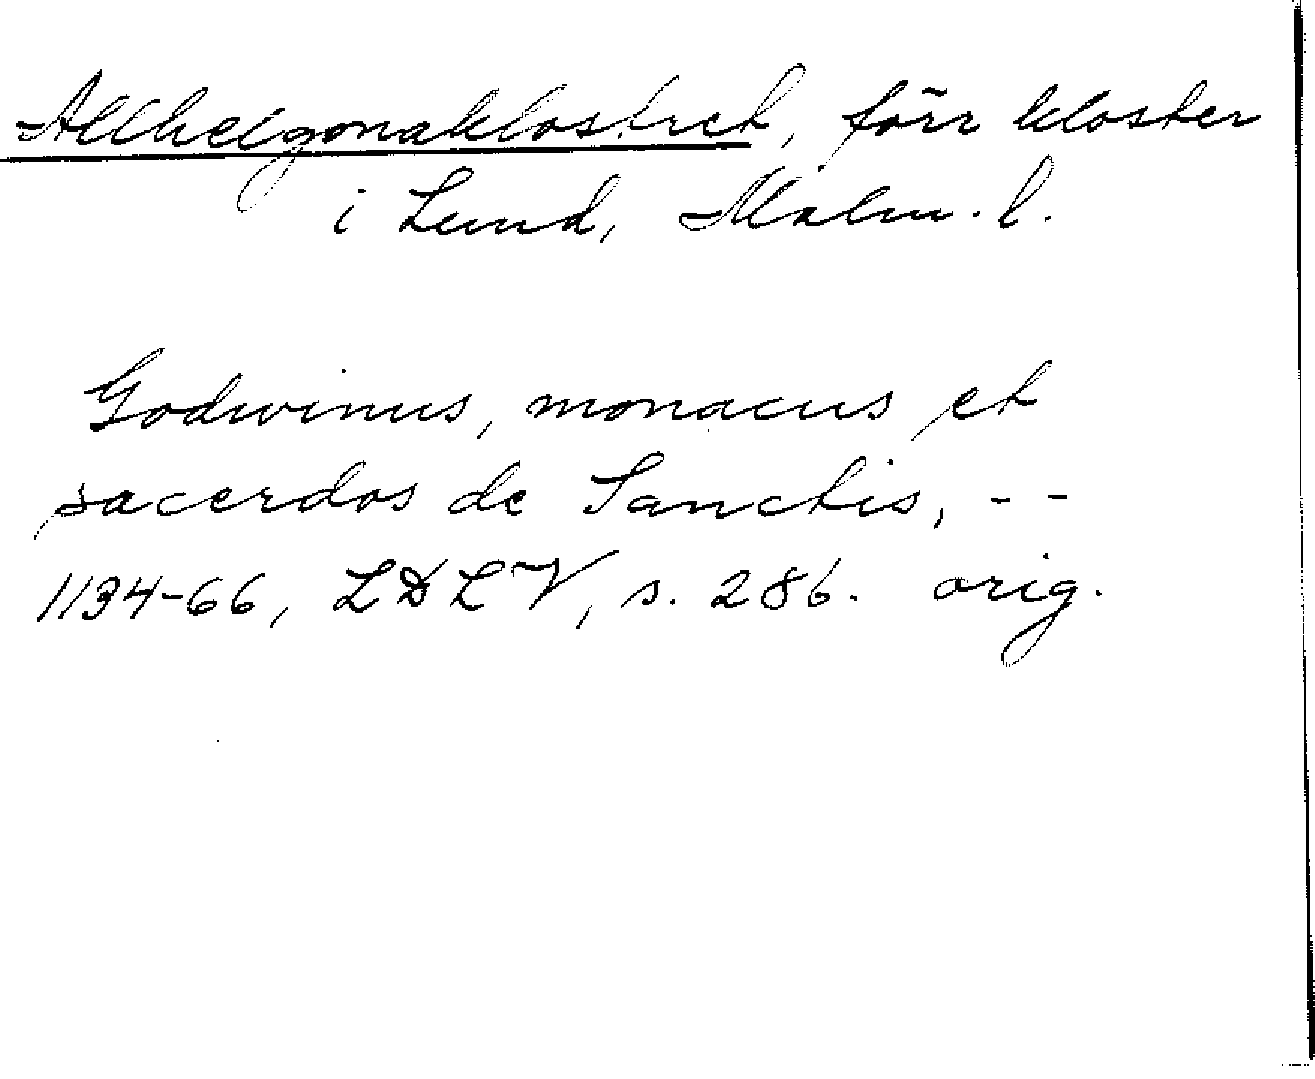 Allhelgonaklostret, förr kloster
i Lund, Malm. l.
Godwinus, monacus et
sacerdos de Sanctis, - -
1134-66, LDLV, s. 286. orig.